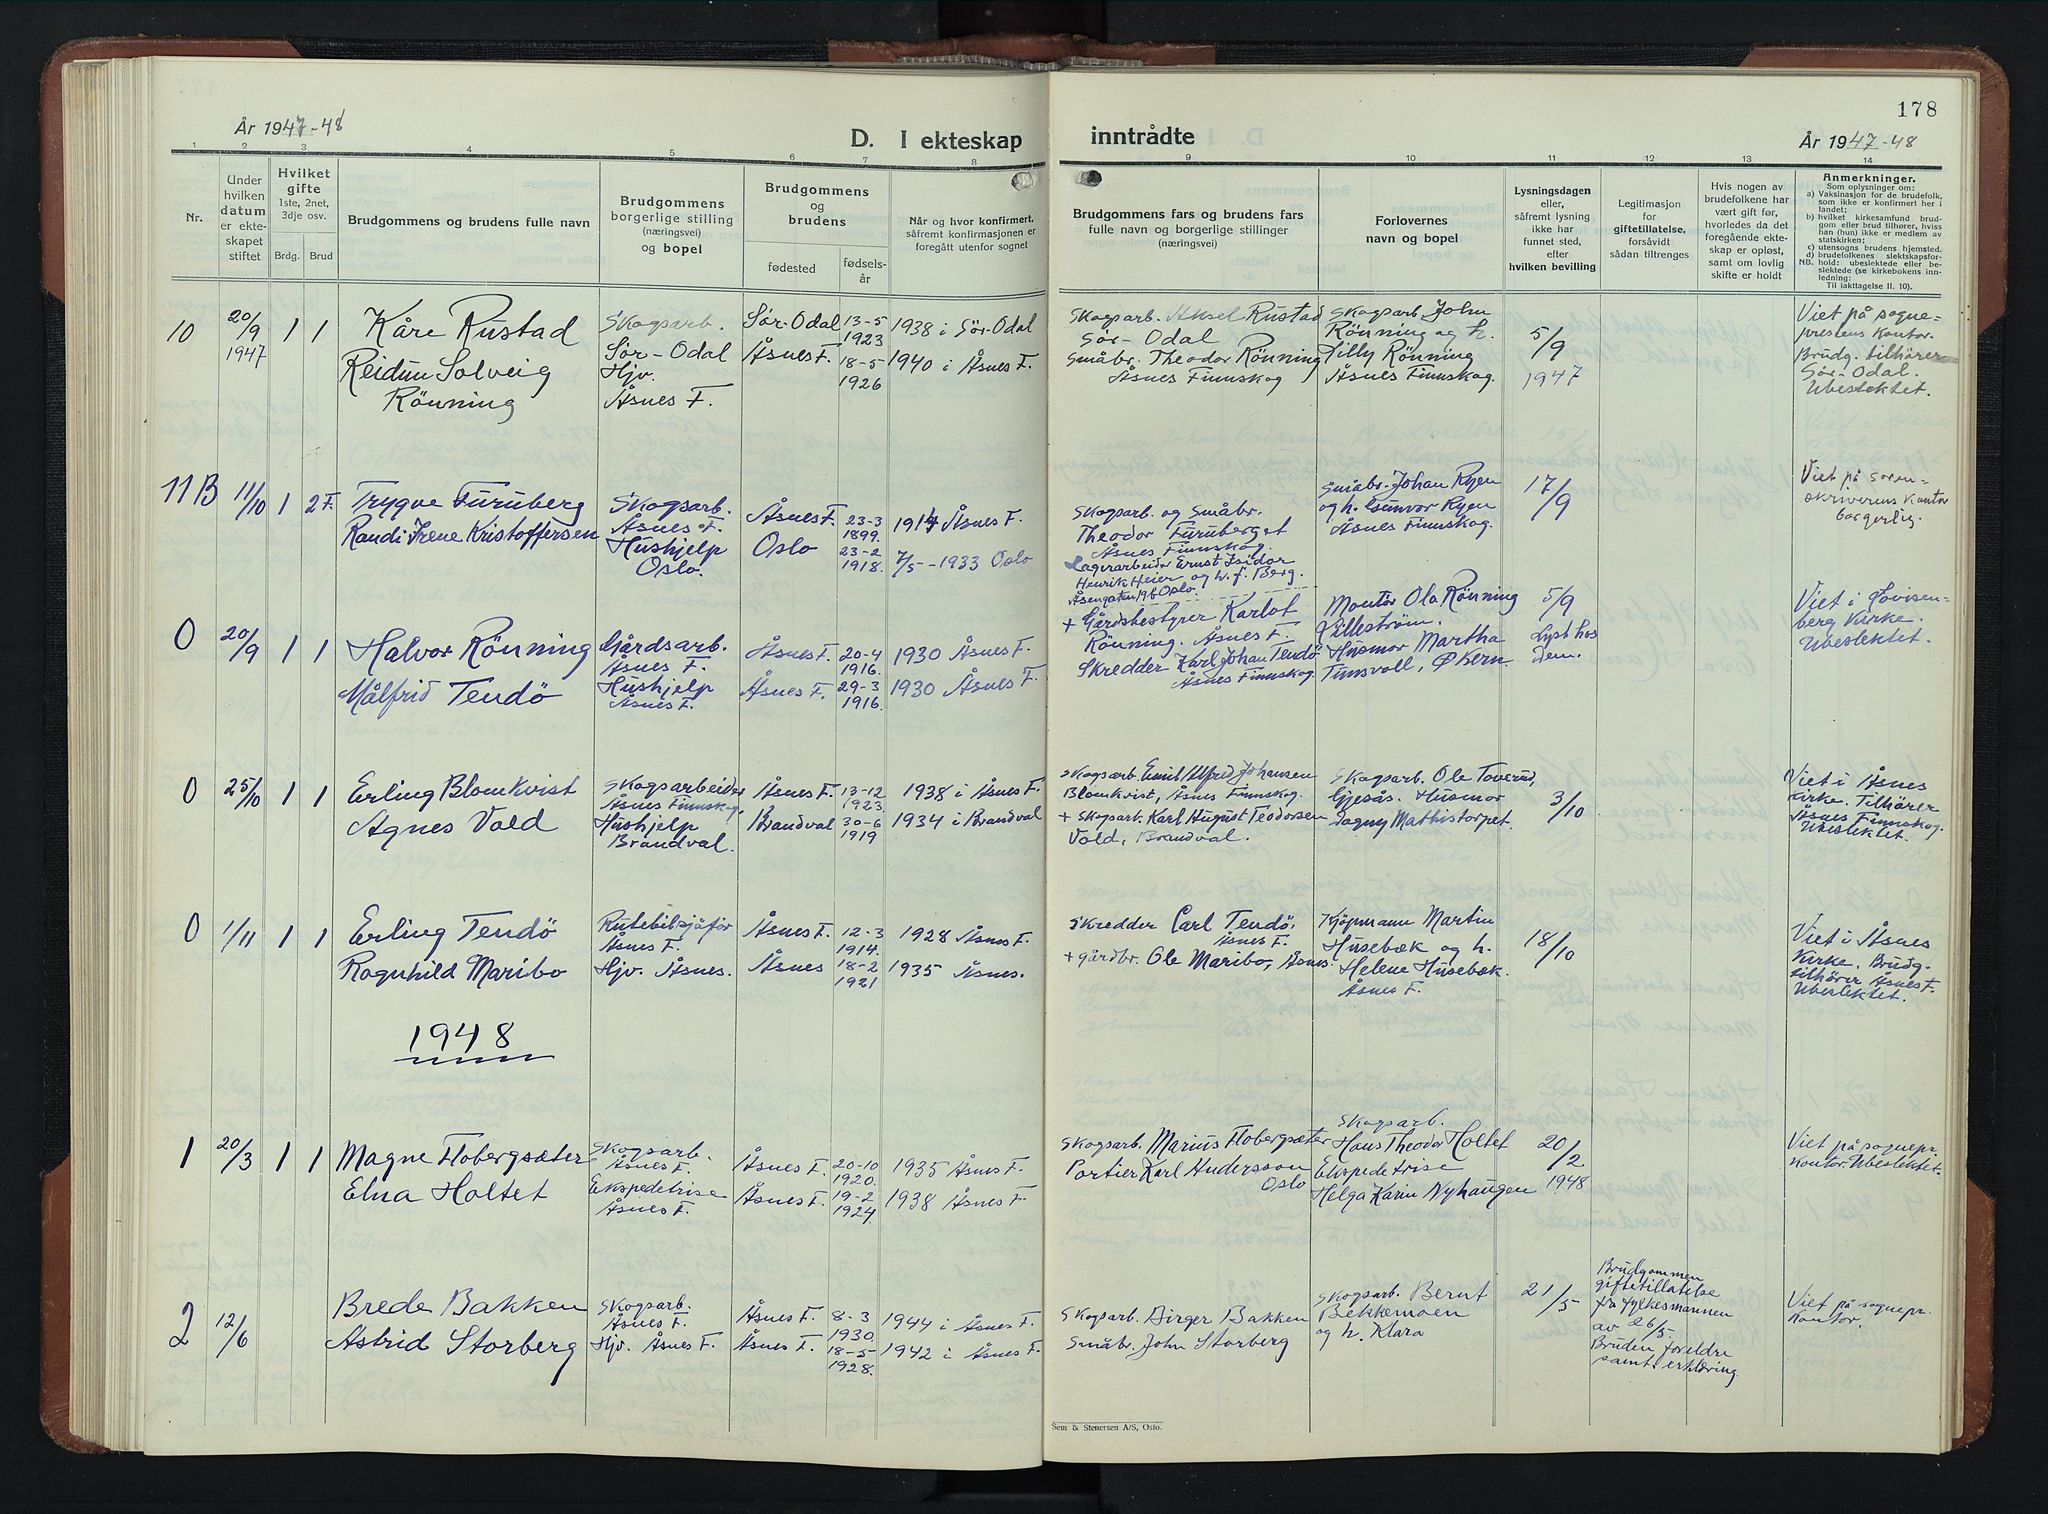 178
År 1947-48
D. I ekteskap
inntrådte
År 1947-48
1 2 3 4 5 6 7 8 9 10 11 12 13 14
Nr.
Under
hvilken
datum
er ekte-
skapet
stiftet
Hvilket
gifte
1ste, 2net,
3dje osv.
Brdg. Brud
Brudgommens og brudens fulle navn
Brudgommens
borgerlige stilling
(næringsvei)
og bopel
Brudgommens
og
brudens
fødested
fødsels-
år
Når og hvor konfirmert,
såfremt konfirmasjonen er
foregått utenfor sognet
Brudgommens fars og brudens fars
fulle navn og borgerlige stillinger
(næringsvei)
Forlovernes
navn og bopel
Lysningsdagen
eller,
såfremt lysning
ikke har
funnet sted,
efter
hvilken bevilling
Legitimasjon
for
giftetillatelse,
forsåvidt
sådan tiltrenges
Hvis nogen av
brudefolkene har
vært gift før,
hvorledes da det
foregående ekte-
skap er opløst,
samt om lovlig
skifte er holdt
Anmerkninger.
Som oplysninger om:
a) Vaksinasjon for de brudefolk,
som ikke er konfirmert her i
landet;
b) hvilket kirkesamfund brud-
gom eller brud tilhører, hviss
han (hun) ikke er medlem av
statskirken;
c) utensogns brudens hjemsted.
d) brudefolkenes slektskapsfor-
NB. hold: ubeslektede eller be-
slektede (se kirkebokens inn-
ledning:
Til iakttagelse II. 10).
10
20/9
1947
1 1
Kåre Rustad
Reidun Solveig
Rönning
Skogsarb.
Sør-Odal
Hjv.
Åsnes F.
Sør-Odal
Åsnes F.
13-5
1923
18-5
1926
1938 i Sør-Odal
1940 i Åsnes F.
Skogsarb. Aksel Rustad
Sør-Odal
Småbr. Theodor Rönning
Åsnes Finnskog
Skogsarb John
Rönning og h.
Lilly Rönning
Åsnes Finnskog.
5/9
1947
Viet på sogne-
prestens kontor.
Brudg. tilhører
Sør-Odal.
Ubeslektet.
11B
11/10
1 2 F.
Trygve Furuberg
Randi Irene Kristoffersen
Skogsarb.
Åsnes F.
Hushjelp
Oslo.
Åsnes F.
Oslo
23-3
1899.
23-2
1918.
1914 Åsnes F.
7/5-1933 Oslo
Skogsarb. og Småbr.
Theodor Furuberget
Åsnes Finnskog.
Lagerarbeider Ernst Isidor
Henrik Heier og h. f. Berg.
Åsengaten 19b Oslo.
Småbr. Johan Ryen
og h. Gunvor Ryen
Åsnes Finnskog.
17/9
Viet på soren-
skriverens kontor
borgerlig.
0
20/9
1 1
Halvor Rönning
Målfrid Tendö
Gårdsarb.
Åsnes F.
Hushjelp
Åsnes F.
Åsnes F.
Åsnes F.
20-4
1916.
29-3
1916.
1930 Åsnes F.
1930 Åsnes F.
+ Gårdsbestyrer Karlot
Rönning. Åsnes F.
Skredder Karl Johan Tendö
Åsnes Finnskog
Montör Ola Rönning
Lilleström.
Husmor Martha
Timsvoll, Økern.
5/9
Lyst hos
dem.
Viet i Lovisen-
berg Kirke.
Ubeslektet.
0
25/10
1 1
Erling Blomkvist
Agnes Vold
Skogsarbeider
Åsnes Finnskog,
Hushjelp
Brandval.
Åsnes F.
Brandval
13-12
1923.
30-6
1919
1938 i Åsnes F.
1934 i Brandval
Skogsarb. Emil Alfred Johansen
Blomkvist, Åsnes Finnskog.
+ Skogsarb. Karl August Teodorsen
Vold, Brandval.
Skogsarb. Ole Toverud,
Gjesås. Husmor
Dagny Mathistorpet.
3/10
Viet i Åsnes
Kirke. Tilhører
Åsnes Finnskog.
Ubeslektet.
0
1/11
1 1
Erling Tendö
Ragnhild Maribo
Rutebilsjåför
Åsnes F.
Hjv. Åsnes.
Åsnes F.
Åsnes
12-3
1914.
18-2
1921
1928 Åsnes F.
1935 Åsnes.
Skredder Carl Tendö,
Åsnes F.
+ gårdbr. Ole Maribo, Åsnes.
Kjöpmann Martin
Husebæk og h.
Helene Husebæk.
Åsnes F.
18/10
Viet i Åsnes
Kirke. Brudg.
tilhører Åsnes F.
Ubeslektet.
1948
1
20/3
1 1
Magne Flobergsæter
Elna Holtet
Skogsarb.
Åsnes F.
Ekspedetrise
Åsnes F.
Åsnes F.
Åsnes F.
20-10
1920.
19-2
1924.
1935 Åsnes F.
1938 Åsnes F.
Skogsarb. Marius Flobergsæter
Portier Karl Andersson
Oslo
Skogsarb.
Hans Theodor Holtet
Ekspedetrise
Helga Karin Nyhaugen
20/2
1948
Viet på sognepr.
Kontor. Ubeslektet.
2
12/6
Brede Bakken
Astrid Storberg
Skogsarb.
Åsnes F.
Hjv. Åsnes F.
Åsnes F.
Åsnes F.
8-3
1930.
18-5
1928.
1944 i Åsnes F.
1942 i Åsnes F.
Skogsarb. Birger Bakken
Småbr. John Storberg
Skogsarb. Bernt
Bekkemoen
og h. Klara
21/5
Brudgommen
giftetillatelse
fra fylkesmannen
av 26/5.
Bruden foreldre
samt. erklæring.
Viet på sognepr.
Kontor.
Sem & Stenersen A/S, Oslo.